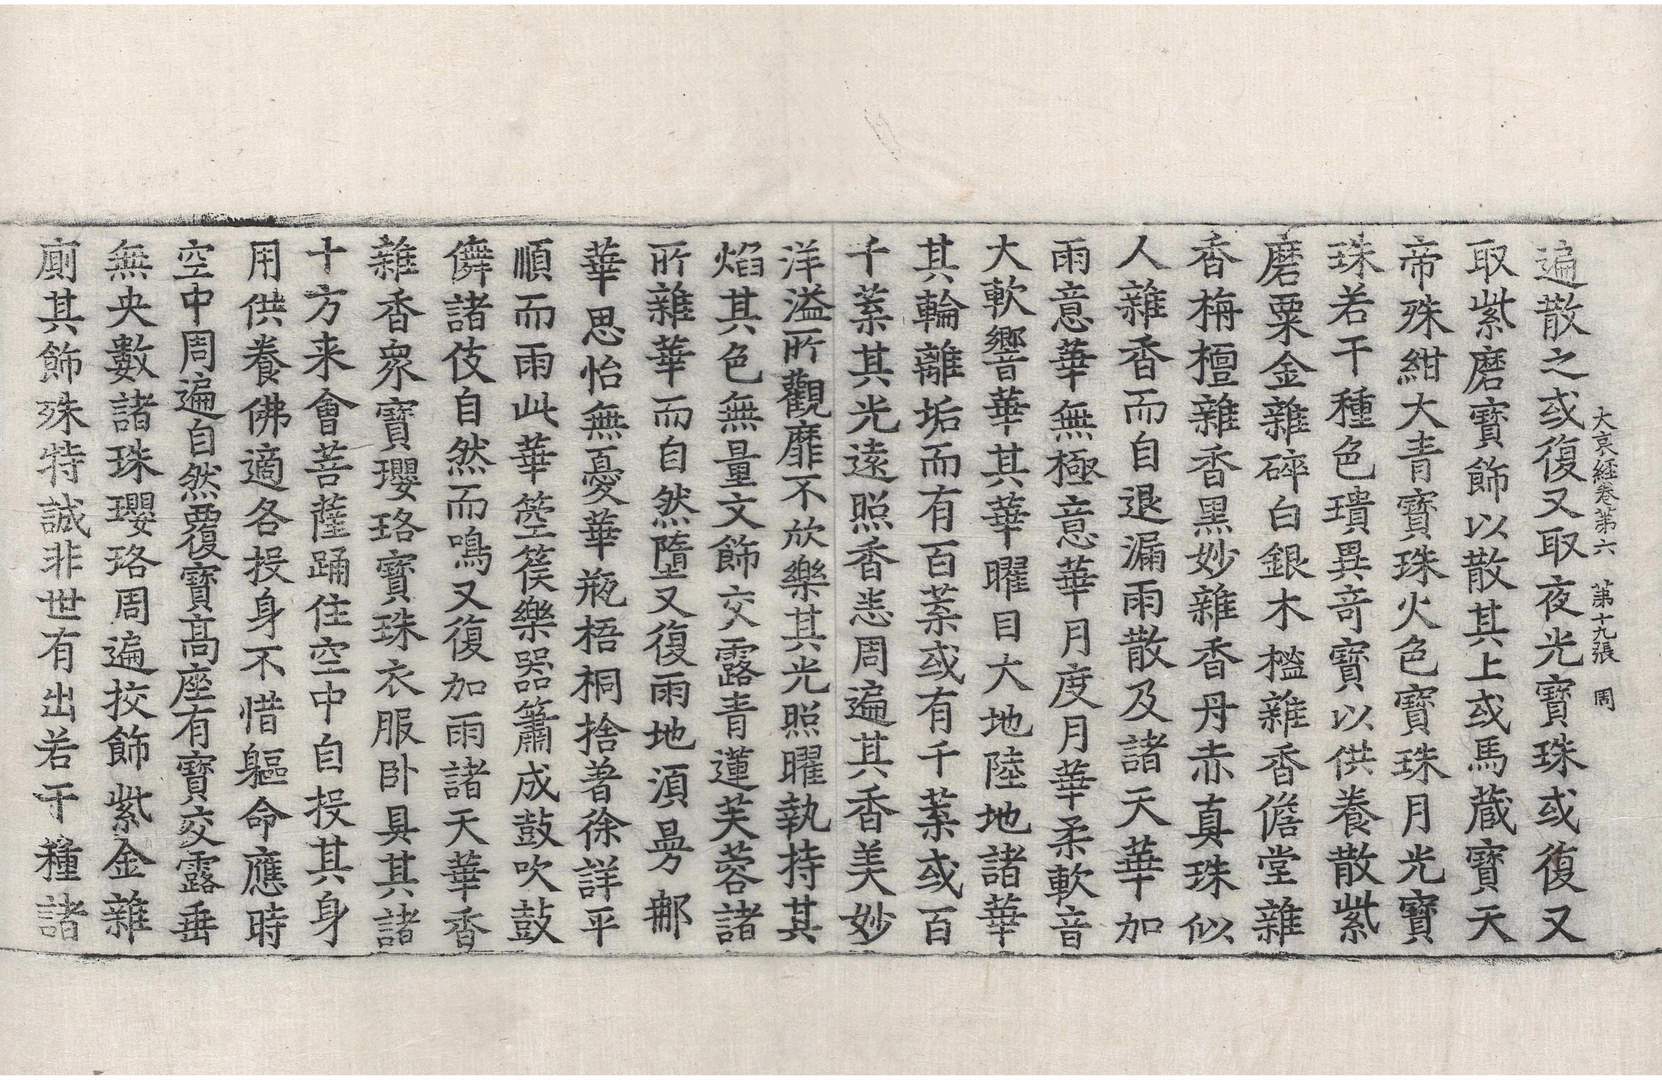 大哀經卷第六　第十九張　周
遍散之或復又取夜光寶珠或復又
取紫磨寶飾以散其上或馬藏寶天
帝殊紺大青寶珠火色寶珠月光寶
珠若干種色璝異奇寶以供養散紫
磨粟金雜碎白銀木櫁雜香儋堂雜
香栴檀雜香黑妙雜香丹赤真珠似
人雜香而自退漏雨散及諸天華加
雨意華無極意華月度月華柔軟音
大軟響華其華曜目大地陸地諸華
其輪離垢而有百葉或有千葉或百
千葉其光遠照香悉周遍其香美妙
洋溢所觀靡不欣樂其光照曜執持其
焰其色無量文飾交露青蓮芙蓉諸
所雜華而自然墮又復雨地湏曼那
華思怡無憂華瓶梧桐捨著徐詳平
順而雨此華箜篌樂器簫成鼓吹鼓
儛諸伎自然而鳴又復加雨諸天華香
雜香衆寶瓔珞寶珠衣服卧具其諸
十方来會菩薩踊住空中自投其身
用供養佛適各投身不惜軀命應時
空中周遍自然覆寶高座有寶交露垂
無央數諸珠瓔珞周遍挍飾紫金雜
廁其飾殊特誠非世有出若干種諸